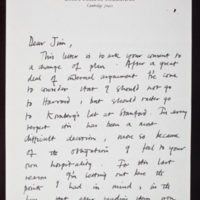 Cambridge
Dear Jim,
This letter is to ask your consent to
a change of plan. After a great
deal of internal argument I've come
to consider that I should not go
to Harvard, but should rather go
to Kornberg's lab at Stanford. In every
respect this has been a most
difficult decision, more so because
of the obligation I feel to your
own hospitality. In the last
reason I'm setting out here the
points I had in mind, in the
hope that after reading them you